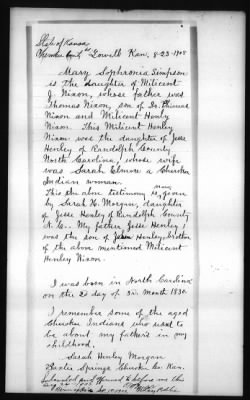 State of Kansas,
Cherokee County SS Lowell Kan. 8-23-1908
Mary Sophronia Simpson
is the daughter of Milicent
J. Nixon, whose father was
Thomas Nixon, son of Dr. Phineas
Nixon and Milicent Henly
Nixon. This Milicent Henley
Nixon was the daughter of Jesse
Henley of Randolph County
North Carolina, whose wife
was Sarah Elmore a Cherokee
Indian woman.
This the above testimony is given
by Sarah H. Morgan, daughter
of Jesse Henley of Randolph County
N. C. My father Jesse Henley,
was the son of Henley, brother
of the above mentioned Milicent
Henley Nixon.
I was born in North Carolina
on the 2d day of 3d. Month 1830.
I remember some of the aged
Cherokee Indians who used to
be about my father's in my
childhood.
Sarah Henley Morgan
Baxter Springs Cherokee Co. Kan.
Subscribed and affirmed to before me this